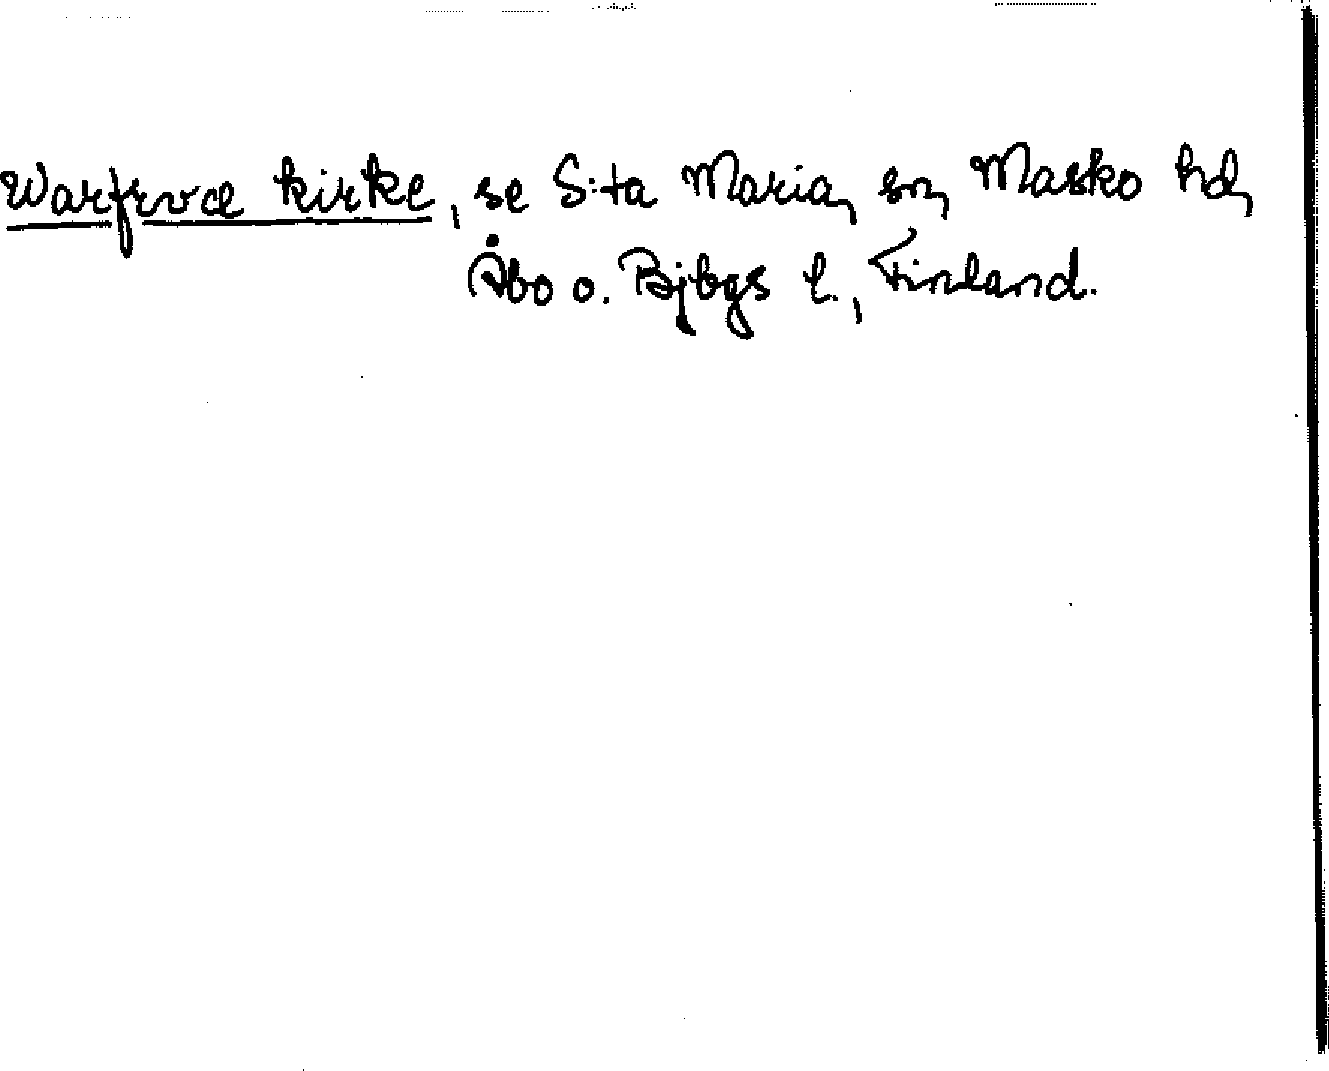 Warfrvæ kirke, se S:ta Maria, sn, Masko hd,
Åbo o. Bjbgs l., Finland.